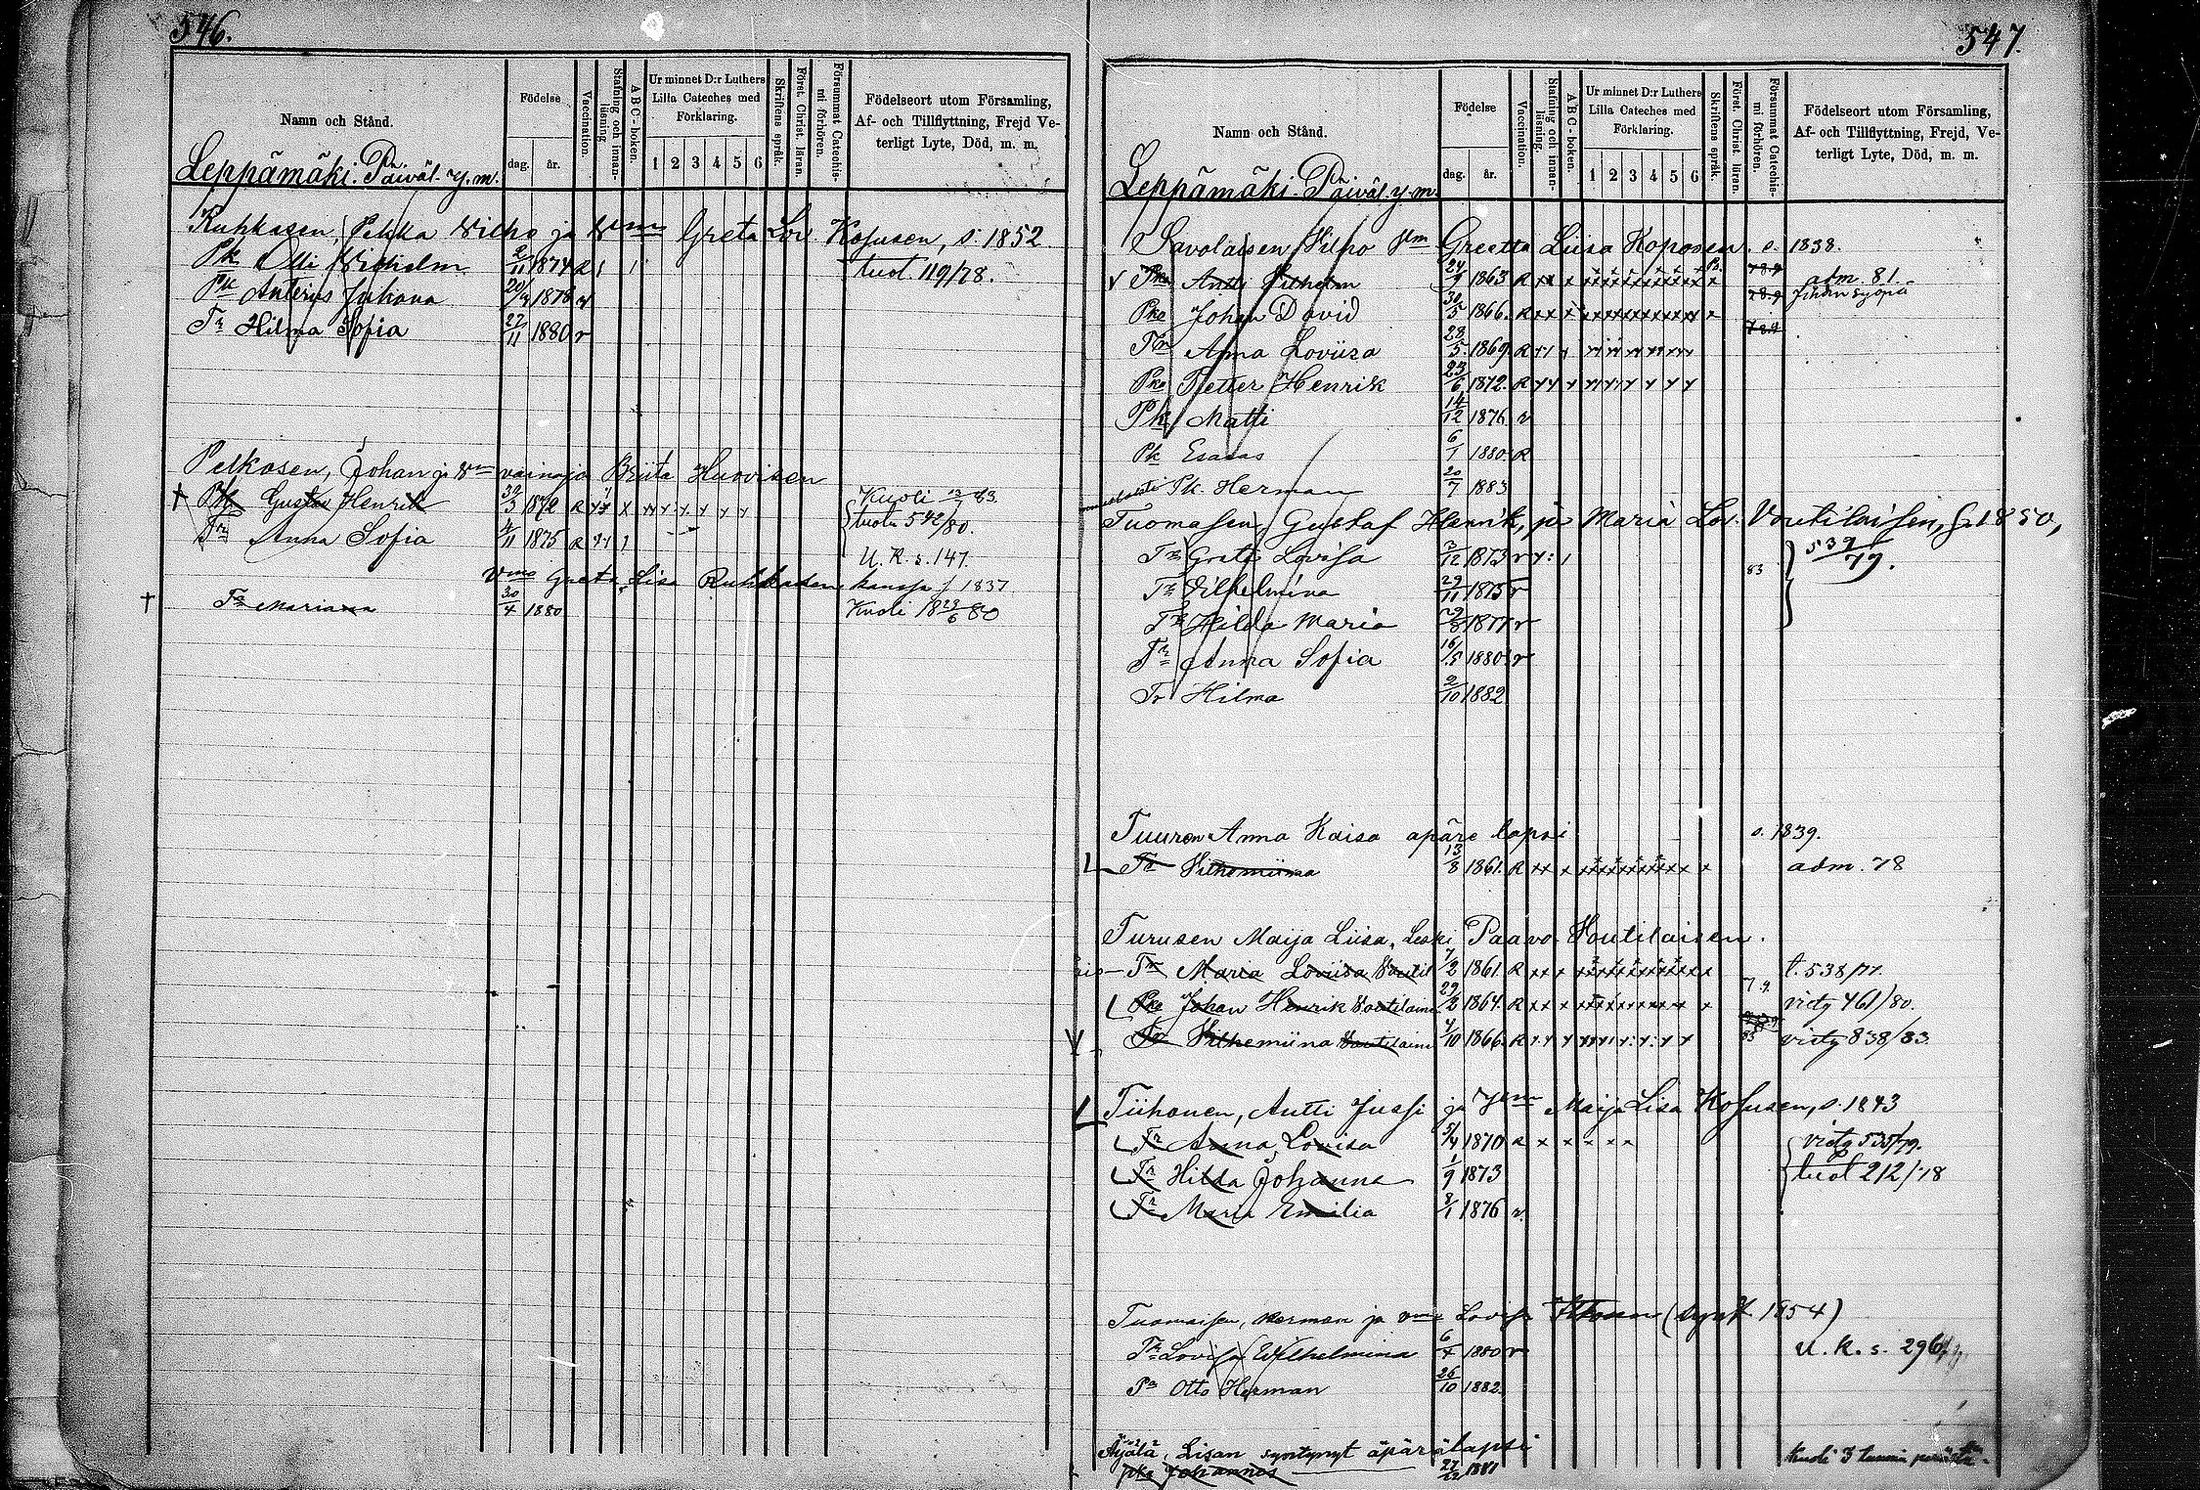 546.
Namn och Stånd.
Födelse
dag. år.
Vaccination.
Stafning och innanläsning
ABC-boken.
Ur minnet D:r Luthers Lilla Cateches med Förklaring.
1 2 3 4 5 6
Skriftens språk.
Först. Christ. läran.
Försummat Catechismi förhören.
Födelseort utom Församling, Af- och Tillflyttning, Frejd Veterligt Lyte, Död, m. m.
Leppämäki. Päiväl. y.m.
Ruhkasen, Pekka Vilho ja Vmn Greta Lov. Kosusen, s. 1852
Pk Olli Vilhelm 2/11 1874 R tuot 119/78.
Pk Anterus Juhana 20/9 1878
Tr Hilma Sofia 27/11 1880 r
Pelkosen, Johan j. Vmn vainaja Briita Huovisen
† Pk Gustav Henrik 30/3 1872 R x x Kuoli 83
Tr Anna Sofia 4/11 1875 R tuotu 542/80.
U. K. s. 147.
Vmo Greta Lisa Ruhkasen kanssa f 1837
† Tr Mariana 30/4 1880 Kuoli 18 23/6 80
547.
Namn och Stånd.
Födelse
dag. år.
Vaccination.
Stafning och innanläsning.
ABC-boken.
Ur minnet D:r Luthers Lilla Cateches med Förklaring.
1 2 3 4 5 6
Skriftens språk.
Först. Christ. läran.
Försummat Catechismi förhören.
Födelseort utom Församling, Af- och Tillflyttning, Frejd, Veterligt Lyte, Död, m. m.
Leppämäki. Päiväl. y.m.
Savolaisen Vilho Greetta Liisa Koposen. s. 1838.
v Pka Antti Vilhelm 24/9 1863 R xx x adm. 81.
Pka Johan David 30/5 1866. R xx x
Tr Anna Loviisa 28/5 1869. R
Pka Petter Henrik 23/6 1872. R
Pk Matti 14/12 1876 r
Pk Esaias 6/1 1880. R
Pk. Herman 20/7 1883
Tuomasen, Gustaf Henrik, ja Maria Lov. Voutilaisen, s. 1850,
Tr Greta Lovisa 3/12 1873 r 83 539/79.
Tr Vilhelmina 29/11 1875 r
Tr Hilda Maria 29/8 1877 r
Tr Anna Sofia 16/5 1880 r
Tr Hilma 2/10 1882
Tuuron Anna Kaisa apäre lapsi s. 1839.
Tr Vilhemiina 13/8 1861. R xx x adm. 78
Turusen Maija Liisa, Leski Paavo Voutilaisen.
Tr Maria Loviisa Voutil 7/2 1861. R xx x t. 538/77.
Pka Johan Henrik Voutilaine 29/2 1864. R xx x 7.9. viety 461/80.
Tr Vilhemiina Voutilaine 4/10 1866. R 83 viety 838/83.
Tiihonen, Antti Jussi ja Vmn Maija Lisa Kosusen, s. 1843
Tr Anna Lovisa 5/4 1870 R x x x x x viety 535/79.
Tr Hilda Johanna 1/9 1873 tuot 212/78
Tr Maria Emilia 8/1 1876 r.
Tuomaisen, Herman ja vmo Lovisa (synt. 1854)
Tr Lovisa Wilhelmina 6/4 1880 r U. K. s. 296
Pa Otto Herman 26/10 1882
Äjälä, Lisan syntynyt äpärälapsi
pka Johannes 27/12 1881 kuoli 3 tunnin perästä.